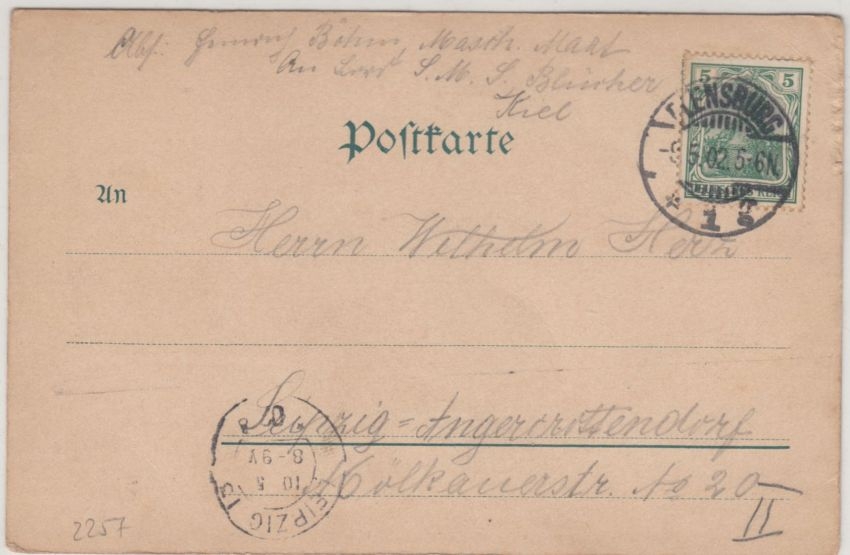 Abs: Heinrich Böhm, Masch. Maat
An Bord S. M. S. Blücher
Kiel
5 5
Postkarte
FLENSBURG
9.5.02. 5-6N.
* 1 s
An
Herrn Wilhelm Herz
Leipzig-Angercrottendorf
Mölkauerstr. No 20
II
LEIPZIG 13
10 5
8-9V
2257